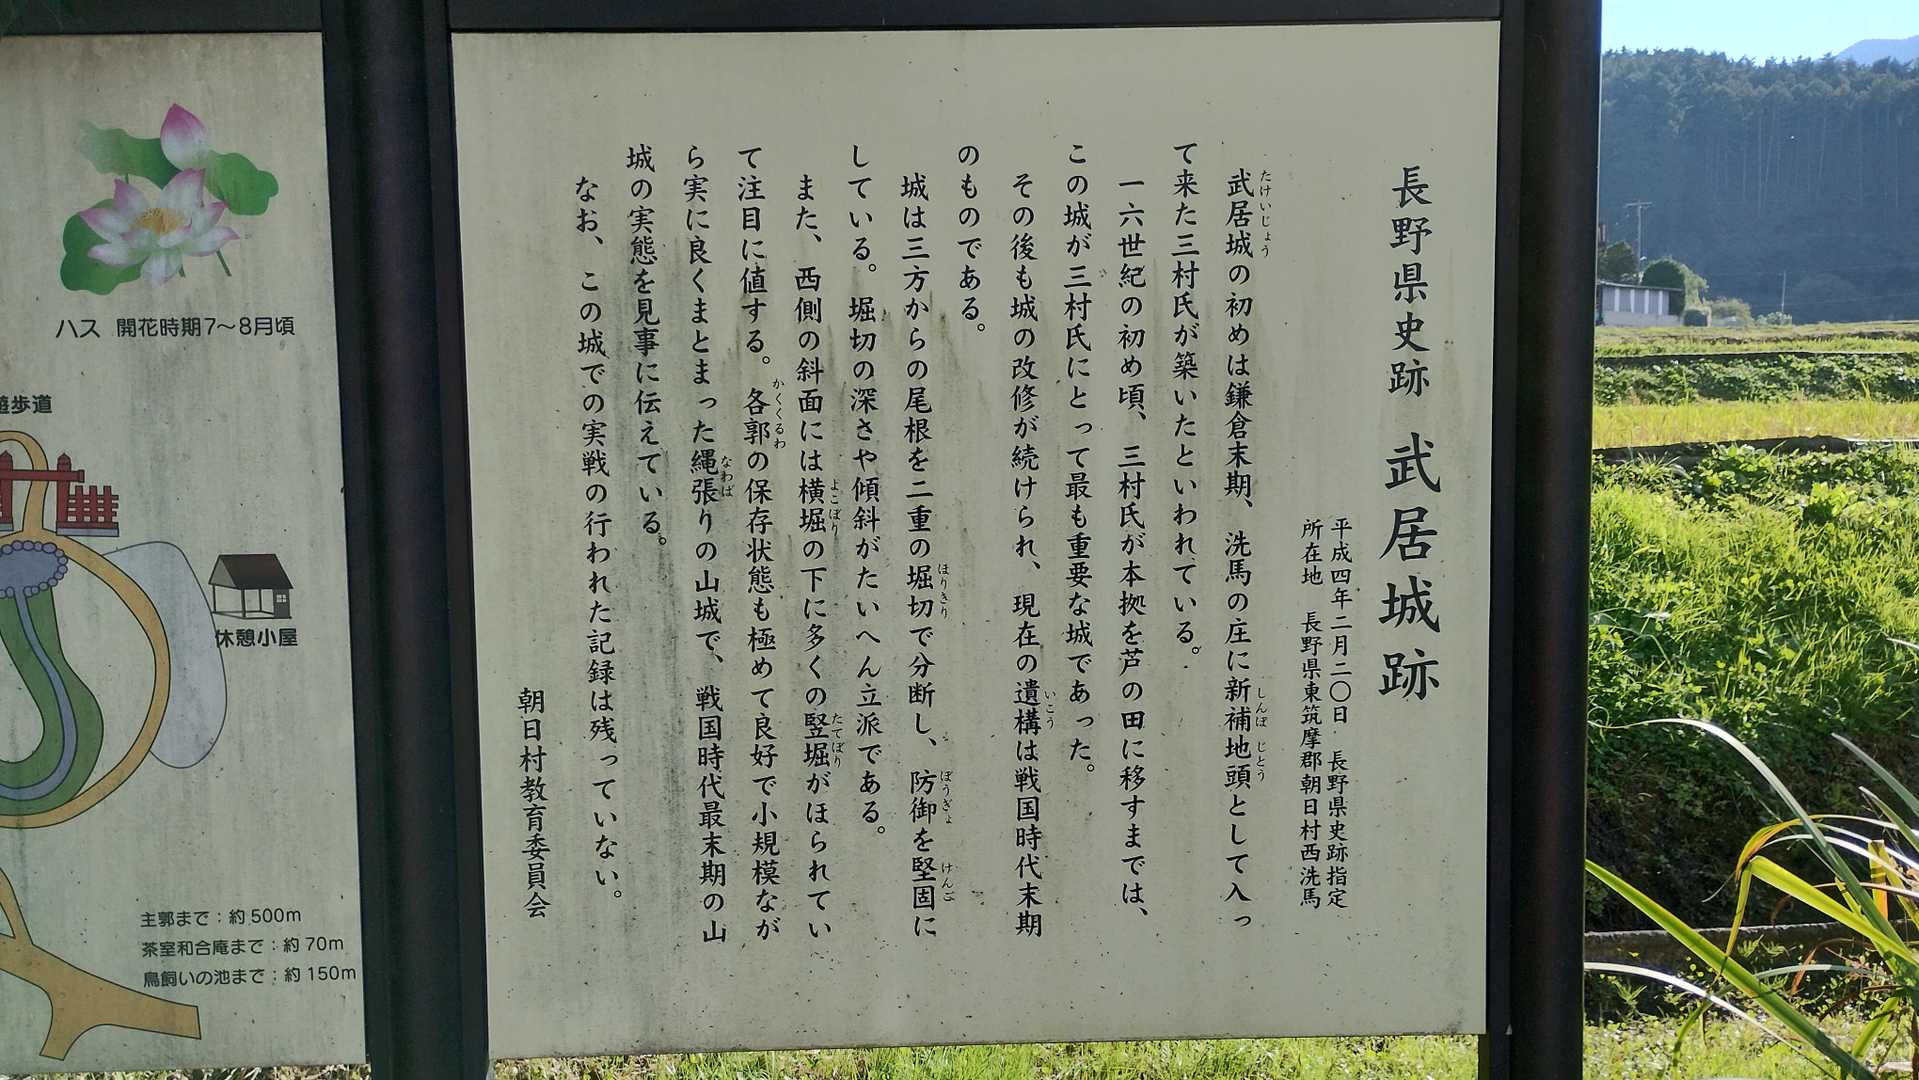 長野県史跡 武居城跡
平成四年二月二〇日 長野県史跡指定
所在地 長野県東筑摩郡朝日村西洗馬
武居城の初めは鎌倉末期、洗馬の庄に新補地頭として入っ
たけいじょう
しんぽ じとう
て来た三村氏が築いたといわれている。
一六世紀の初め頃、三村氏が本拠を芦の田に移すまでは、
この城が三村氏にとって最も重要な城であった。
その後も城の改修が続けられ、現在の遺構は戦国時代末期
いこう
のものである。
城は三方からの尾根を二重の堀切で分断し、防御を堅固に
ほりきり
ぼうぎょ
けんご
している。堀切の深さや傾斜がたいへん立派である。
また、西側の斜面には横堀の下に多くの竪堀がほられてい
よこぼり
たてぼり
て注目に値する。各郭の保存状態も極めて良好で小規模なが
かくくるわ
ら実に良くまとまった縄張りの山城で、戦国時代最末期の山
なわば
城の実態を見事に伝えている。
なお、この城での実戦の行われた記録は残っていない。
朝日村教育委員会
ハス 開花時期7～8月頃
遊歩道
休憩小屋
主郭まで：約500m
茶室和合庵まで：約70m
鳥飼いの池まで：約150m